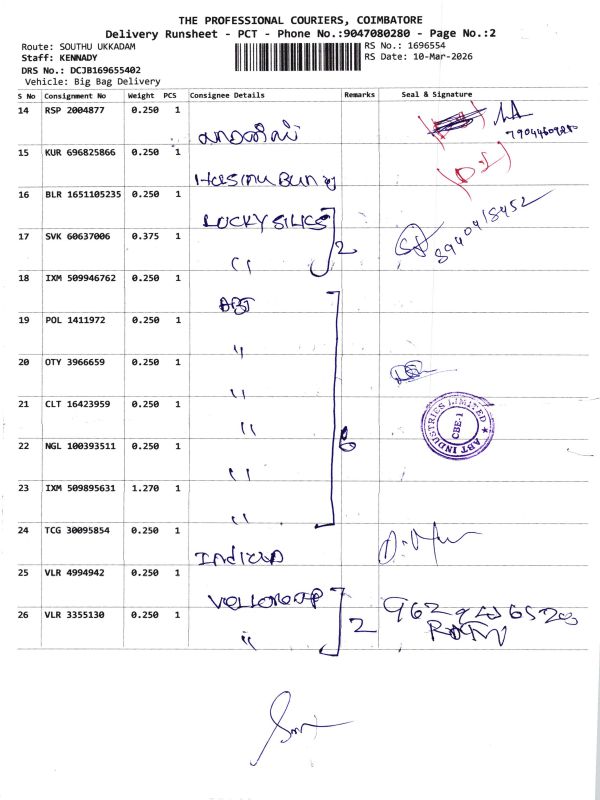 THE PROFESSIONAL COURIERS, COIMBATORE
Delivery Runsheet - PCT - Phone No.:9047080280 - Page No.:2
Route: SOUTHU UKKADAM
RS No.: 1696554
Staff: KENNADY
RS Date: 10-Mar-2026
DRS No.: DCJB169655402
Vehicle: Big Bag Delivery
S No Consignment No Weight PCS Consignee Details Remarks Seal & Signature
14 RSP 2004877 0.250 1
7904460980
15 KUR 696825866 0.250 1
16 BLR 1651105235 0.250 1 LUCKY SILKS
17 SVK 60637006 0.375 1 " 2 8940418452
18 IXM 509946762 0.250 1 ABT
19 POL 1411972 0.250 1 "
20 OTY 3966659 0.250 1 "
21 CLT 16423959 0.250 1 "
ABT INDUSTRIES LIMITED CBE-1
22 NGL 100393511 0.250 1 " 6
23 IXM 509895631 1.270 1 "
24 TCG 30095854 0.250 1
25 VLR 4994942 0.250 1
26 VLR 3355130 0.250 1 " 2